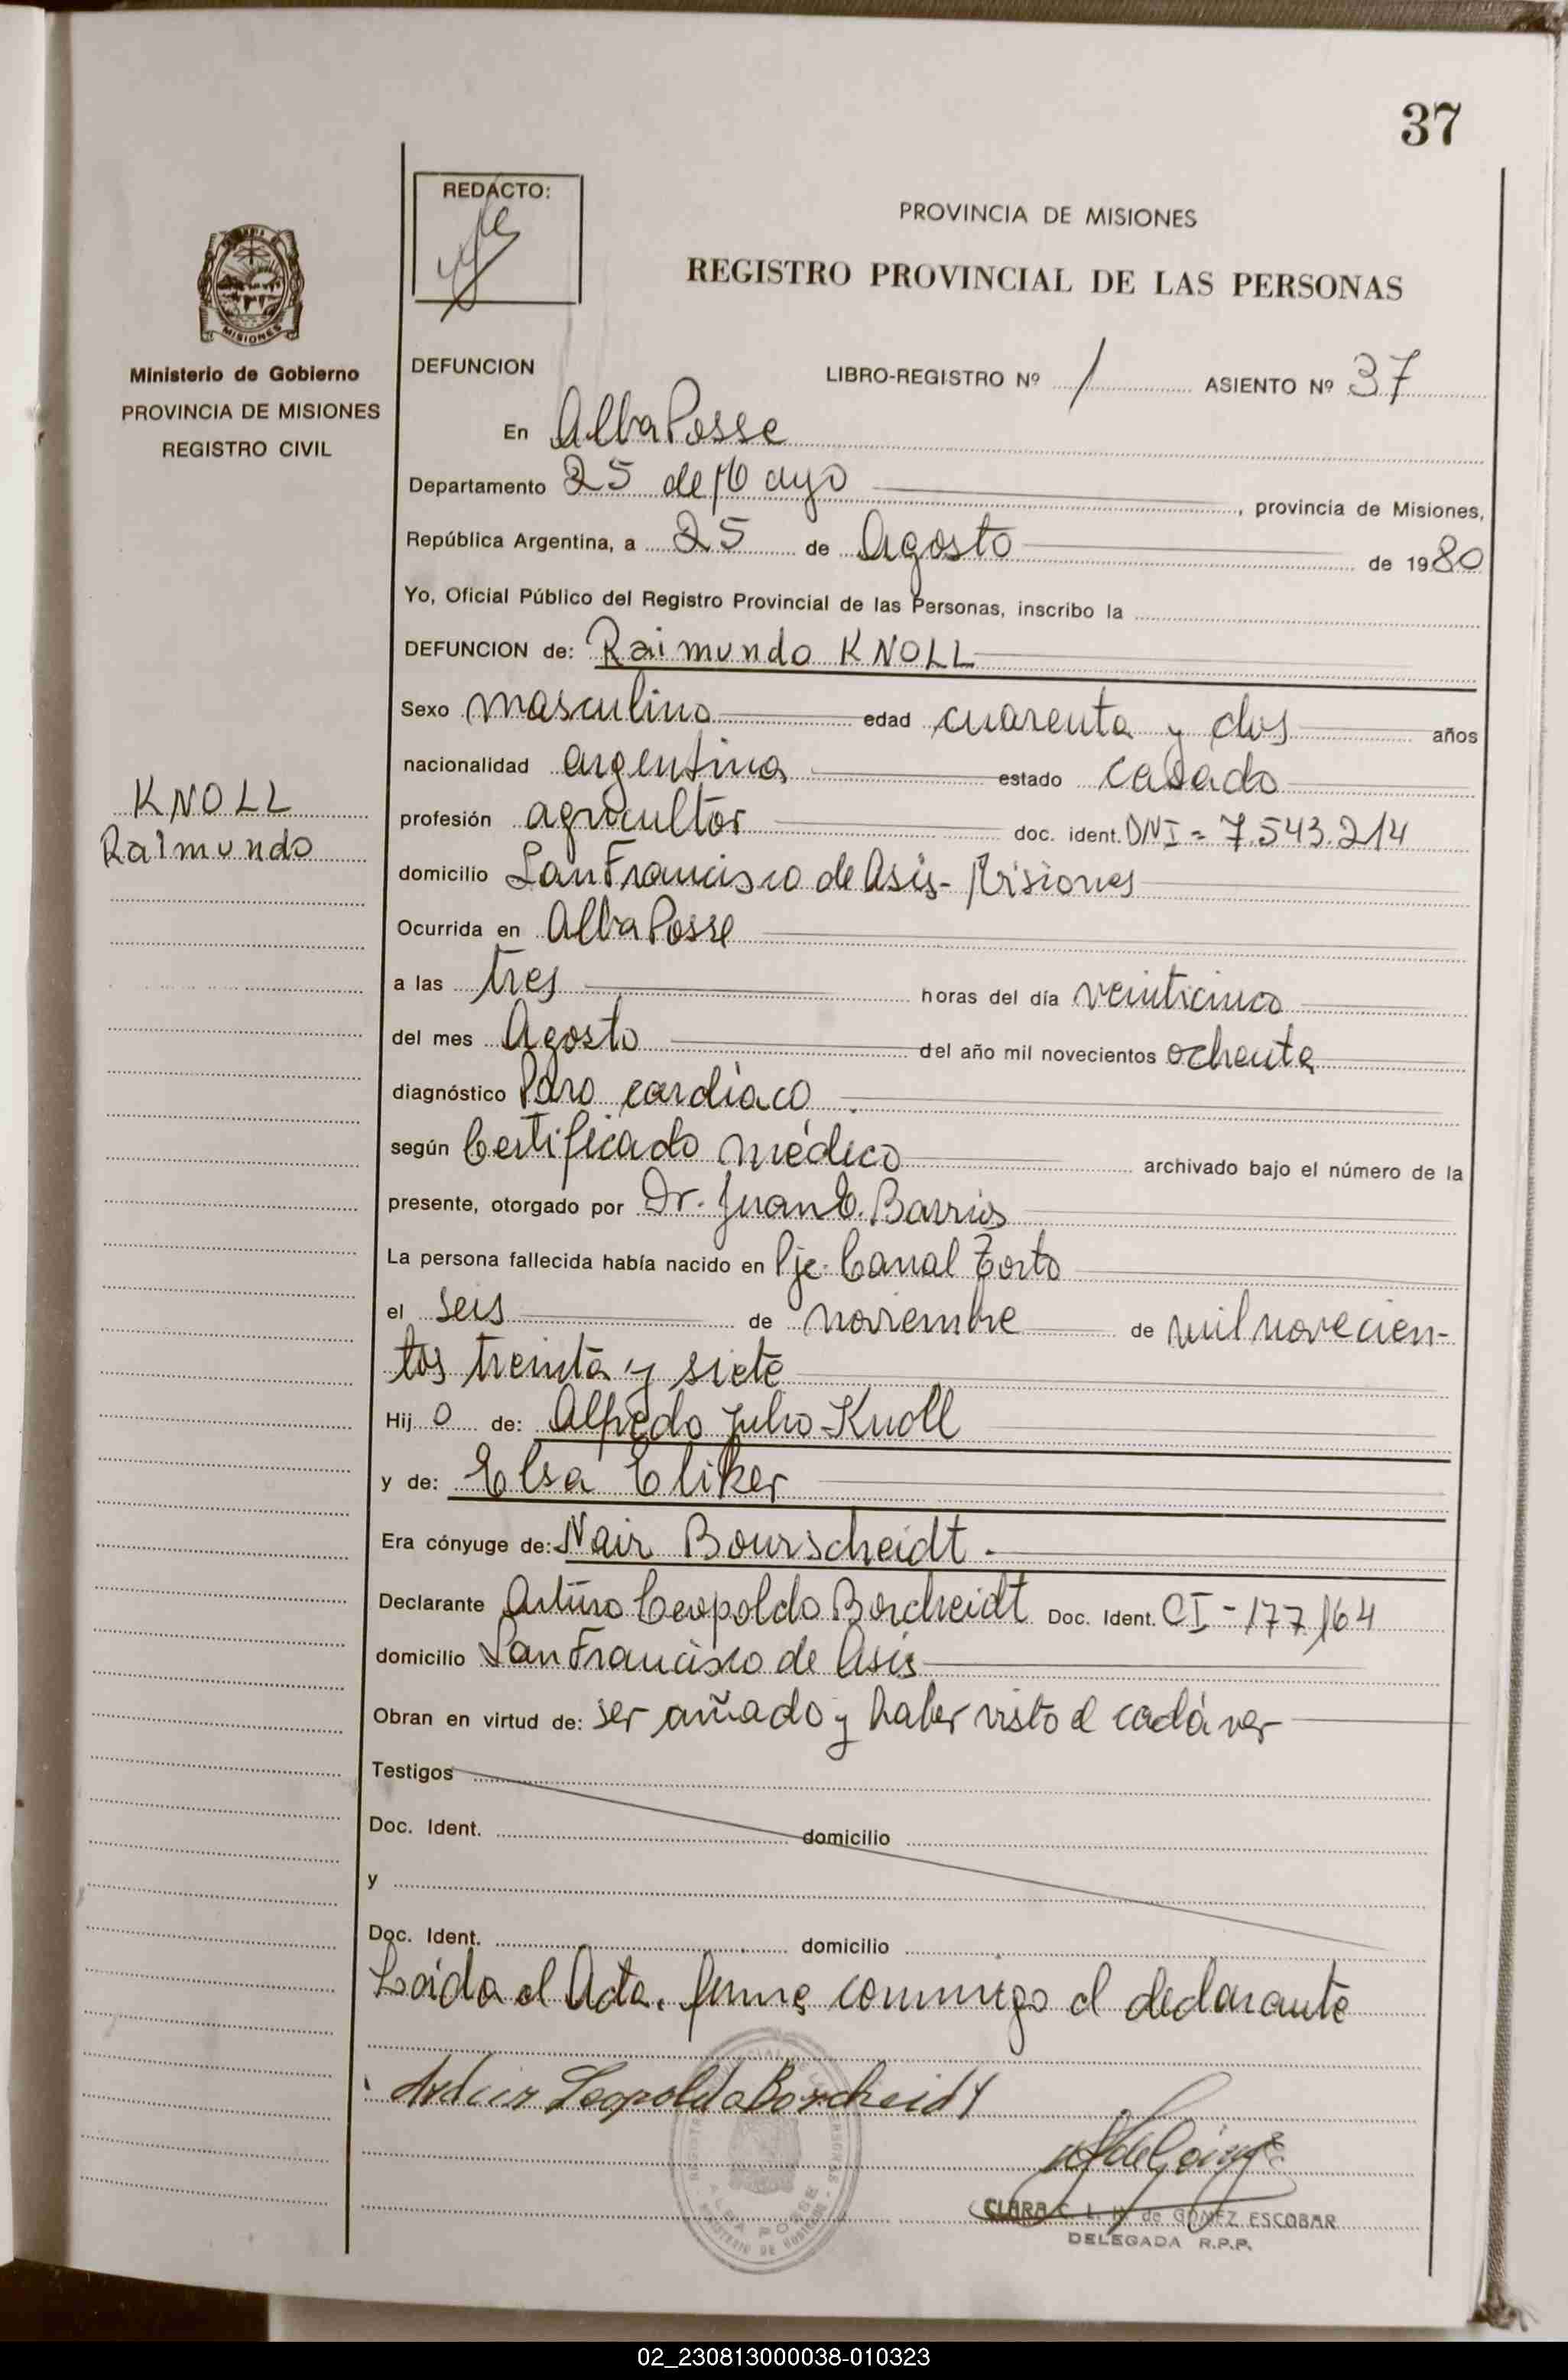 37
REDACTO:
PROVINCIA DE MISIONES
REGISTRO PROVINCIAL DE LAS PERSONAS
MISIONES
Ministerio de Gobierno
PROVINCIA DE MISIONES
REGISTRO CIVIL
DEFUNCION LIBRO-REGISTRO Nº 1 ASIENTO Nº 37
En Alba Posse
Departamento 25 de Mayo, provincia de Misiones,
República Argentina, a 25 de Agosto de 1980
Yo, Oficial Público del Registro Provincial de las Personas, inscribo la
DEFUNCION de: Raimundo KNOLL
Sexo masculino edad cuarenta y dos años
nacionalidad argentina estado casado
KNOLL
Raimundo
profesión agricultor doc. ident. DNI = 7.543.214
domicilio San Francisco de Asis - Misiones
Ocurrida en Alba Posse
a las tres horas del día veinticinco
del mes Agosto del año mil novecientos ochenta
diagnóstico Paro cardíaco
según Certificado médico archivado bajo el número de la
presente, otorgado por Dr. Juan E. Barrios
La persona fallecida había nacido en Pje. Canal Torto
el seis de noviembre de mil novecien-
tos treinta y siete
Hij o de: Alfredo Julio Knoll
y de: Elsa Eliker
Era cónyuge de: Nair Bourscheidt.
Declarante Arturo Leopoldo Borcheidt Doc. Ident. CI - 177.164
domicilio San Francisco de Asis
Obran en virtud de: ser cuñado y haber visto el cadáver
Testigos
Doc. Ident. domicilio
y
Doc. Ident. domicilio
Leida el Acta. firma conmigo el declarante
Leopoldo Borcheidt
ALBA POSSE
CLARA C. L. de GOMEZ ESCOBAR
DELEGADA R.P.P.
02_230813000038-010323